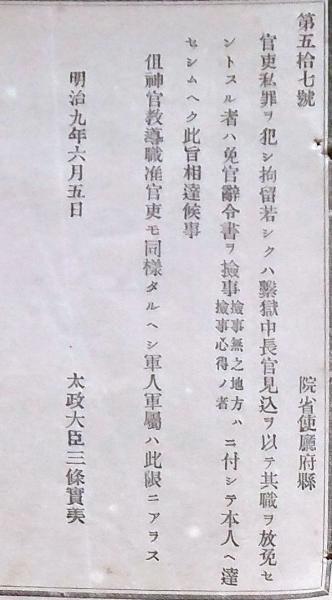 第五拾七號
院省使廳府縣
官吏私罪ヲ犯シ拘留若シクハ繫獄中長官見込ヲ以テ其職ヲ放免セ
ントスル者ハ免官辭令書ヲ撿事撿事無之地方ハ撿事心得ノ者ニ付シテ本人ヘ達
セシムヘク此旨相達候事
但神官敎導職准官吏モ同樣タルヘシ軍人軍屬ハ此限ニアラス
明治九年六月五日
太政大臣三條實美